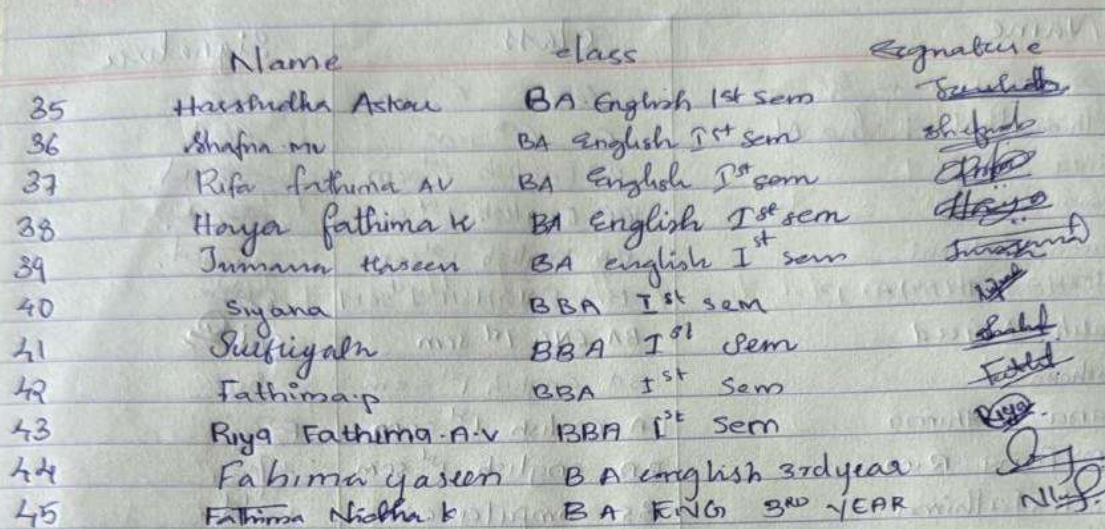 Name class Signature
35 Askar BA English 1st Sem
36 Shafna mv BA English Ist sem
37 Rifa fathima AV BA English Ist sem
38 Haya fathima K BA English Ist sem
39 Jumana BA english Ist sem
40 Siyana BBA Ist Sem
41 BBA Ist Sem
42 Fathima.p BBA Ist Sem
43 Riya Fathima.A.v BBA Ist Sem Riya
44 Fahima yaseen BA english 3rd year
45 Fathima Nidha k BA ENG 3RD YEAR